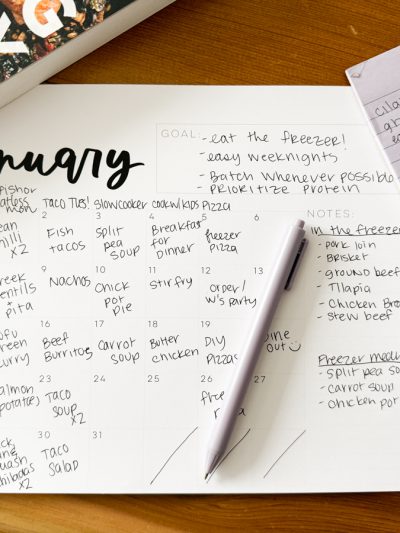 nuary
GOAL:
- eat the freezer!
- easy weeknights
- Batch whenever possible
- prioritize protein
Fish or
atless
mon
Taco Tues!
Slowcooker
cook w/kids
Pizza
ean
hilli
x2
2
Fish
tacos
3
split
pea
soup
4
Breakfast
for
Dinner
5
freezer
pizza
6
reek
entils
+
pita
9
Nachos
10
chick
pot
pie
11
stir fry
12
W's party
13
ofu
reen
curry
16
Beef
Burritos
17
carrot
soup
18
Butter
chicken
19
DIY
Pizzas
ine
out
almon
potatoes
23
Taco
soup
x2
24
25
26
27
uash
chiladas
x2
30
Taco
salad
31
NOTES:
In the freezer
- pork loin
- Brisket
- ground beef
- Tilapia
- Chicken Br
- stew beef
Freezer mea
- split pea so
- carrot soup
- chicken pot
cila